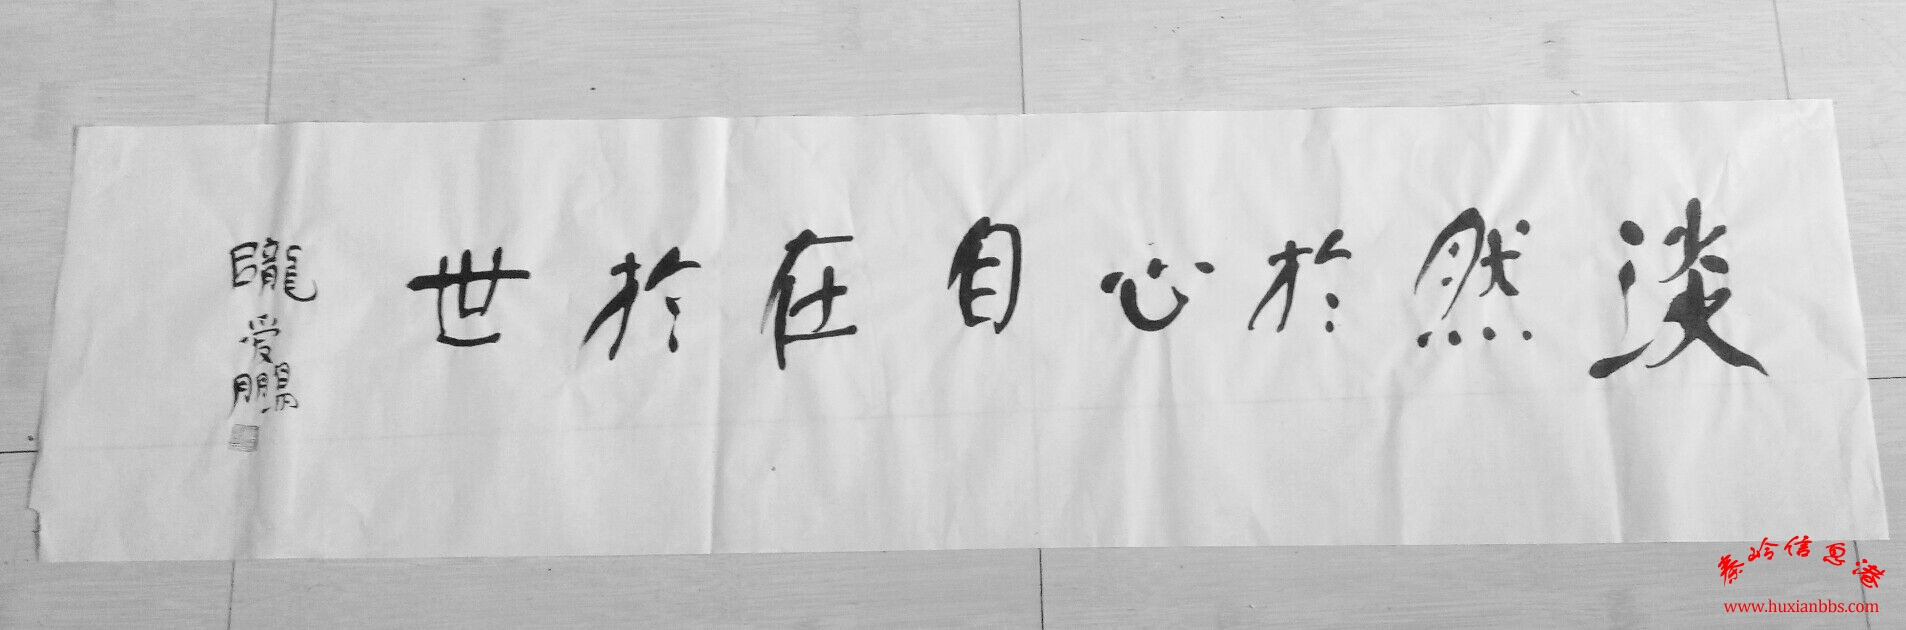 淡然於心自在於世
朧爱鹏
秦岭信息港
www.huxianbbs.com